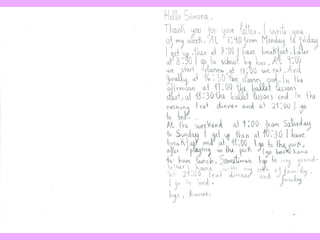 Hello Simona.
Thank you for your letter. I write you
of my week. At 7:40 from Monday to friday
I get up, than at 8:00 I have breakfast. Later
at 8:30 I go to school by bus. At 9:00
we start classes, at 13:00 we eat. And
finally at 16:30 the classes end. In the
afternoon at 17:00 the ballet lessons
start, at 18:30 the ballet lessons end. In the
evening I eat dinner and at 21:00 I go
to bed.
At the weekend at 9:00 from Saturday
to Sunday I get up than at 10:30 I have
breakfast and at 11:00 I go to the park,
after playing in the park I go back home
to have lunch. Sometimes I go to my grand-
house with my rest of family.
At 21:00 I eat dinner and
I go to bed.
bye,